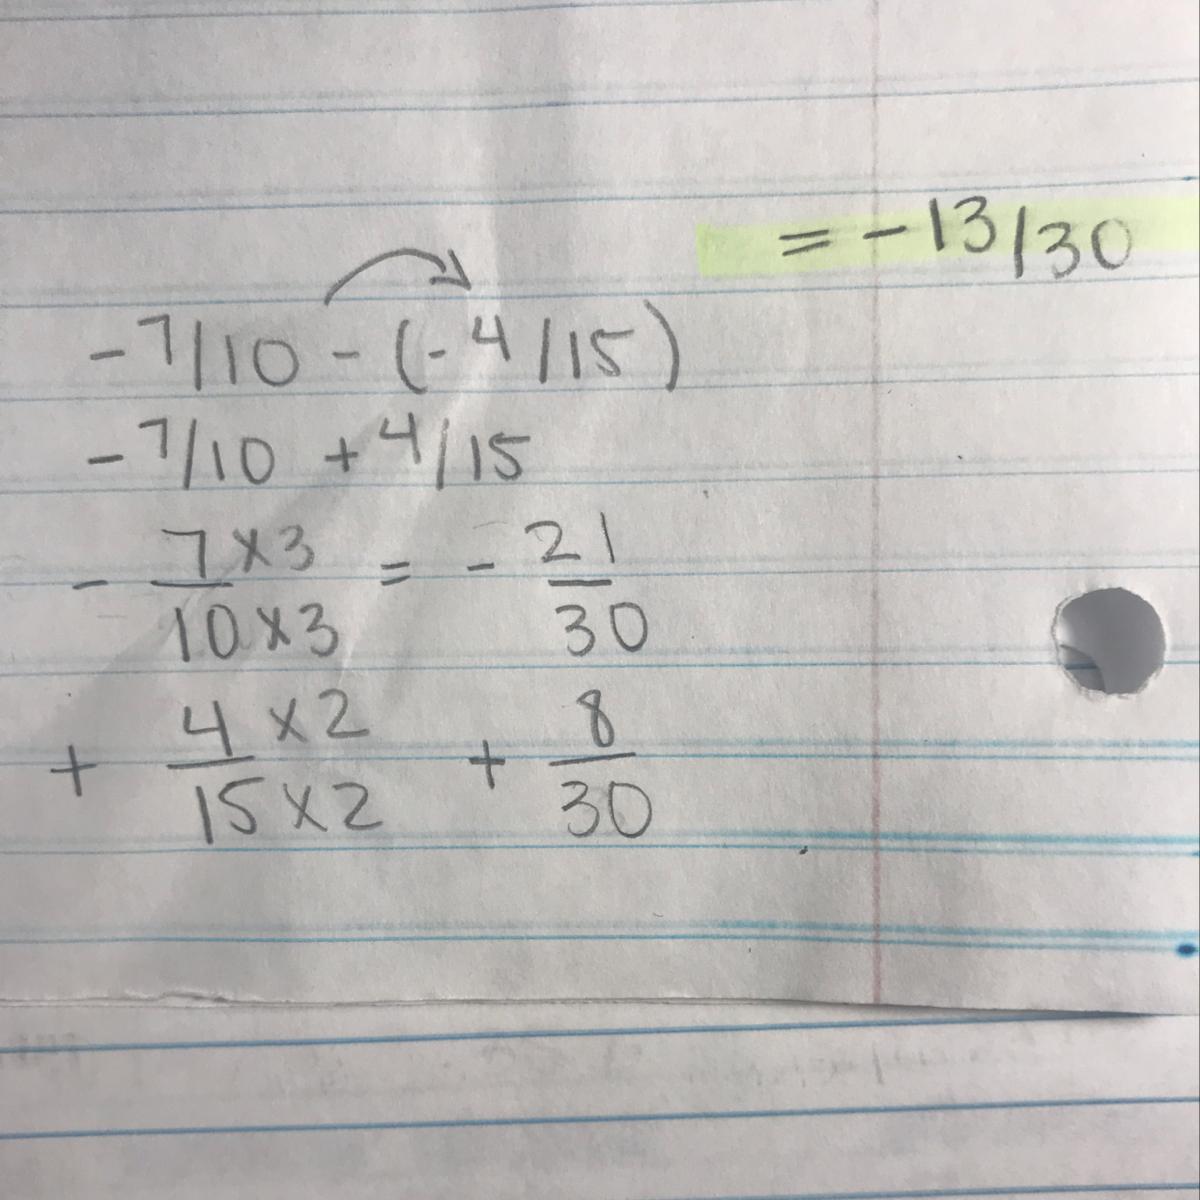 = -13/30
-7/10 - (-4/15)
-7/10 + 4/15
- 7 x 3 / 10 x 3 = - 21 / 30
+ 4 x 2 / 15 x 2 + 8 / 30